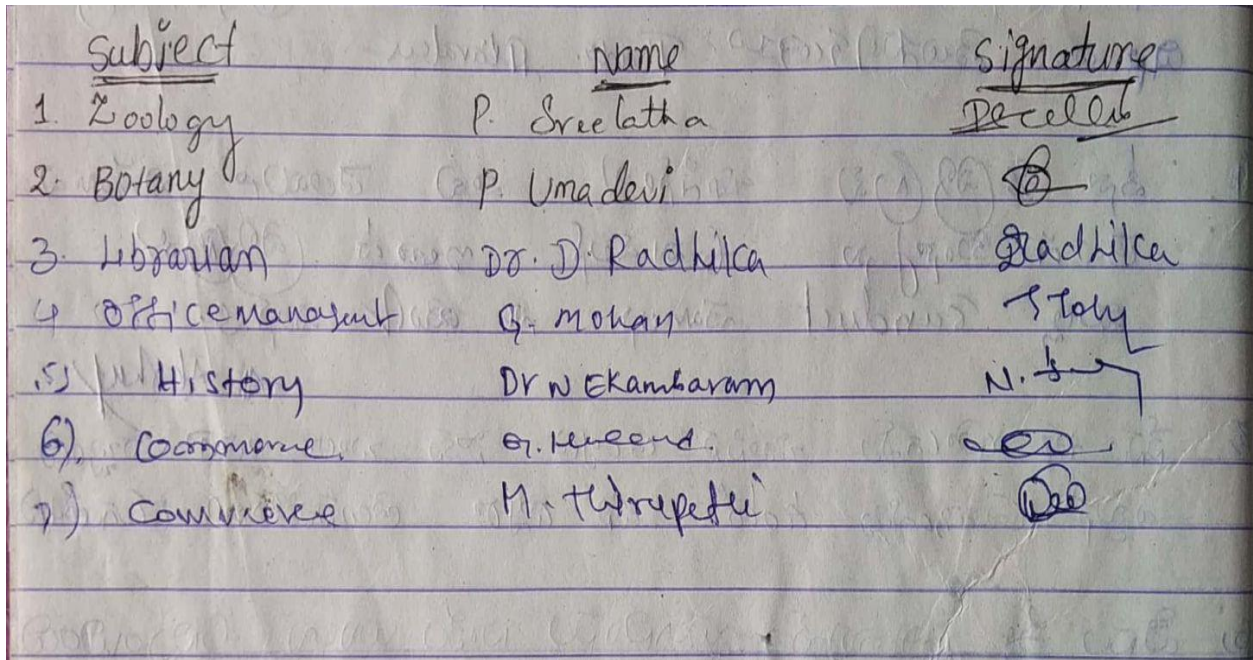 Subject Name Signature
1. Zoology P. Sreelatha
2. Botany P. Umadevi
3. Librarian Dr. D. Radhika Radhika
4 Office manasent G. Mohan
5) History Dr N Ekambaram N.
6). Commerce G.
7) Commerce M. Thirupathi